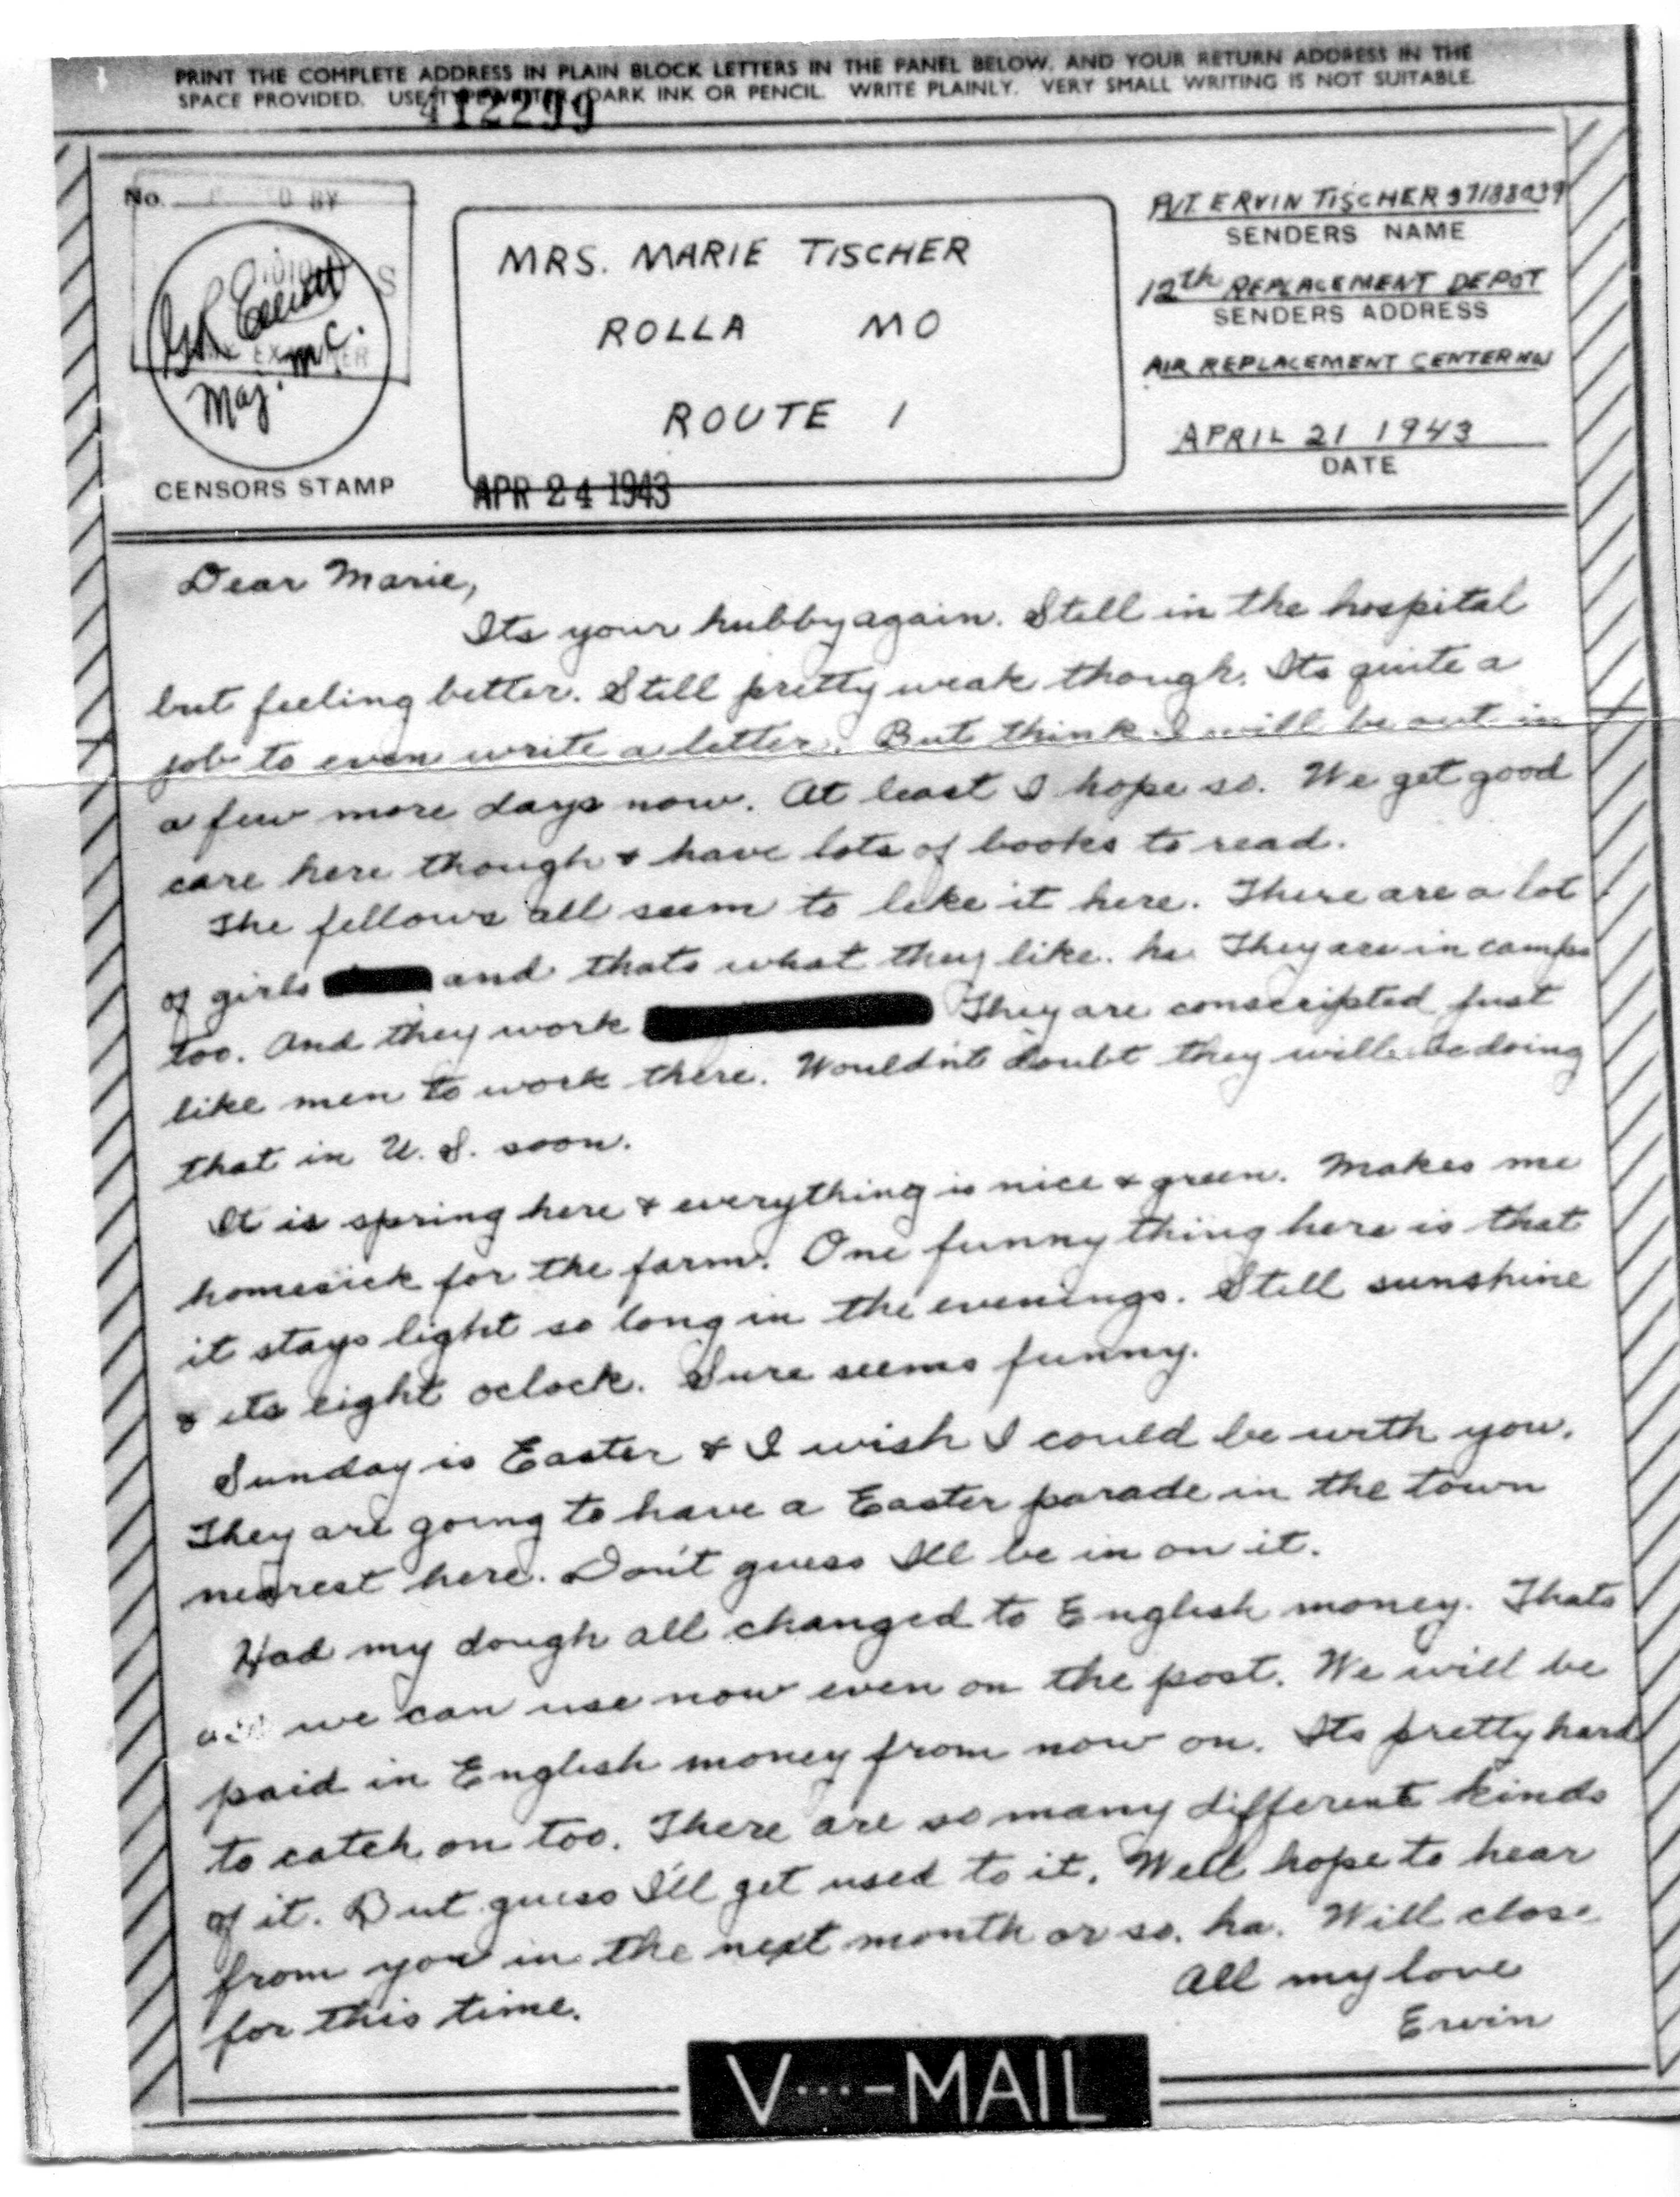 PRINT THE COMPLETE ADDRESS IN PLAIN BLOCK LETTERS IN THE PANEL BELOW, AND YOUR RETURN ADDRESS IN THE
SPACE PROVIDED. USE TYPEWRITER, DARK INK OR PENCIL. WRITE PLAINLY. VERY SMALL WRITING IS NOT SUITABLE.
412299
No.
Elliott
Maj. M.C.
CENSORS STAMP
MRS. MARIE TISCHER
ROLLA MO
ROUTE 1
APR 24 1943
PVT. ERVIN TISCHER 37188039
SENDERS NAME
12th REPLACEMENT DEPOT
SENDERS ADDRESS
AIR REPLACEMENT CENTER
APRIL 21 1943
DATE
Dear Marie,
Its your hubby again. Still in the hospital
but feeling better. Still pretty weak though. Its quite a
job to even write a letter. But think I will be out in
a few more days now. At least I hope so. We get good
care here though & have lots of books to read.
The fellows all seem to like it here. There are a lot
of girls and thats what they like. ha. They are in camps
too. And they work They are conscripted just
like men to work there. Wouldn't doubt they will be doing
that in U. S. soon.
It is spring here & everything is nice & green. Makes me
homesick for the farm. One funny thing here is that
it stays light so long in the evenings. Still sunshine
& its eight oclock. Sure seems funny.
Sunday is Easter & I wish I could be with you.
They are going to have a Easter parade in the town
nearest here. Don't guess I'll be in on it.
Had my dough all changed to English money. Thats
all we can use now even on the post. We will be
paid in English money from now on. Its pretty hard
to catch on too. There are so many different kinds
of it. But guess I'll get used to it. Well hope to hear
from you in the next month or so. ha. Will close
for this time.
All my love
Ervin
V···–MAIL